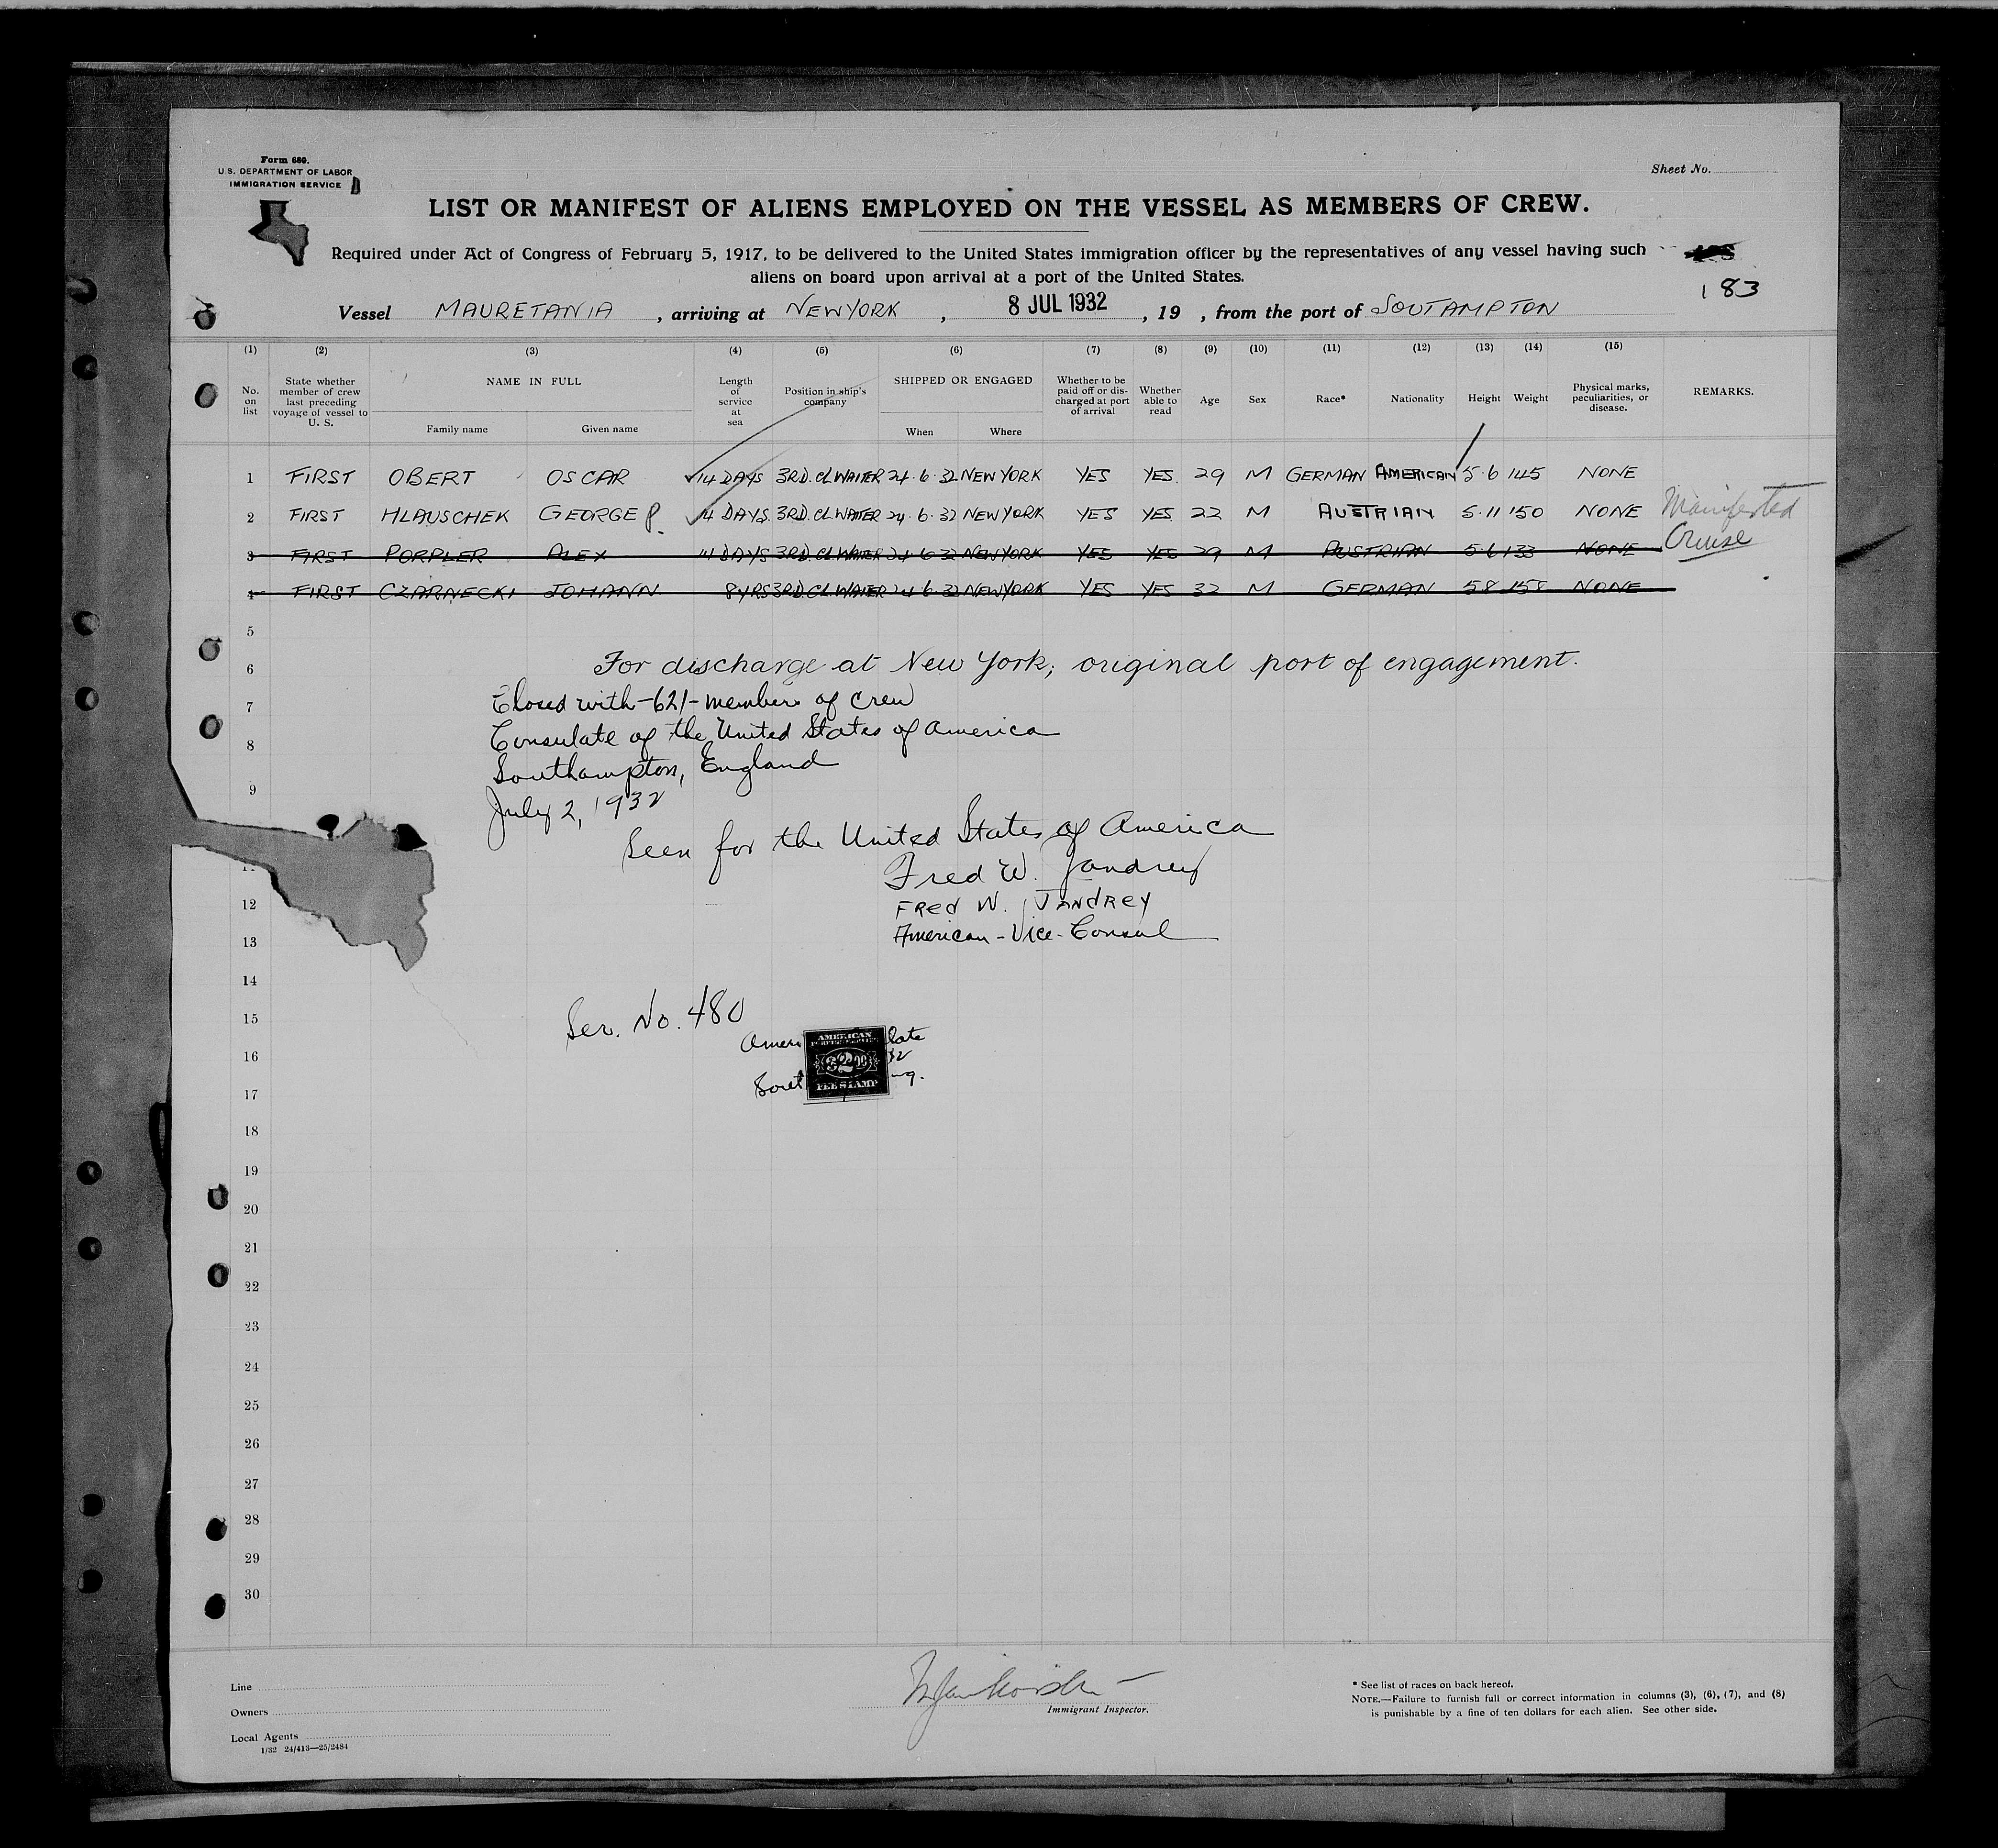 Form 680.
U.S. DEPARTMENT OF LABOR
IMMIGRATION SERVICE
Sheet No.
LIST OR MANIFEST OF ALIENS EMPLOYED ON THE VESSEL AS MEMBERS OF CREW.
Required under Act of Congress of February 5, 1917, to be delivered to the United States immigration officer by the representatives of any vessel having such
aliens on board upon arrival at a port of the United States.
183
Vessel MAURETANIA, arriving at NEWYORK, 8 JUL 1932, 19 , from the port of SOUTAMPTON
(1) (2) (3) (4) (5) (6) (7) (8) (9) (10) (11) (12) (13) (14) (15)
No. on list State whether member of crew last preceding voyage of vessel to U. S. NAME IN FULL Length of service at sea Position in ship's company SHIPPED OR ENGAGED Whether to be paid off or discharged at port of arrival Whether able to read Age Sex Race* Nationality Height Weight Physical marks, peculiarities, or disease. REMARKS.
Family name Given name When Where
1 FIRST OBERT OSCAR 14 DAYS 3RD. CL WAITER 24.6.32 NEW YORK YES YES. 29 M GERMAN AMERICAN 5.6 145 NONE
2 FIRST HLAUSCHEK GEORGE P. 14 DAYS. 3RD. CL WAITER 24.6.32 NEW YORK YES YES 22 M AUSTRIAN 5.11 150 NONE Manifested
3 FIRST PORPLER ALEX 14 DAYS 3RD. CL WAITER 24.6.32 NEW YORK YES YES 29 M AUSTRIAN 5.6 133 NONE Cruise
4 FIRST CZARNECKI JOHANN 8 YRS 3RD. CL. WAITER 24.6.32 NEW YORK YES YES 32 M GERMAN 5.8 158 NONE
5
6 For discharge at New York, original port of engagement.
7 Closed with -621- members of crew
8 Consulate of the United States of America
Southampton, England
9 July 2, 1932
Seen for the United States of America
11 Fred W. Jandrey
12 FRED W. JANDREY
13 American-Vice-Consul
14
15 Ser. No. 480
16 AMERICAN
$2.00
17 FEE STAMP
18
19
20
21
22
23
24
25
26
27
28
29
30
Line
Owners
Local Agents
1/32 24/413—25/2484
Immigrant Inspector.
* See list of races on back hereof.
NOTE.—Failure to furnish full or correct information in columns (3), (6), (7), and (8)
is punishable by a fine of ten dollars for each alien. See other side.